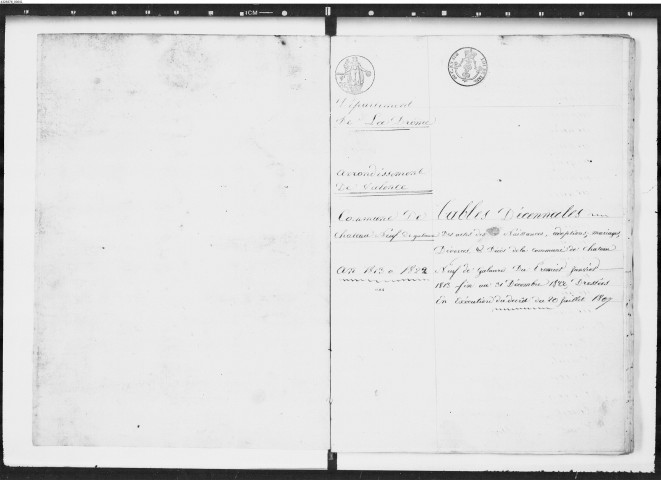 Département
De La Drome
arrondissement
De Valence
Commune De
Chateau Neuf De galaure
an 1813 a 1822
Tables Décennales
Des actes de Naissances, adoptions, mariages,
Divorces & Décès de la commune de Chateau
Neuf de galaure Du Premier Janvier
1813 fin au 31 Décembre 1822, Dressées
En Exécution du décret du 20 Juillet 1807